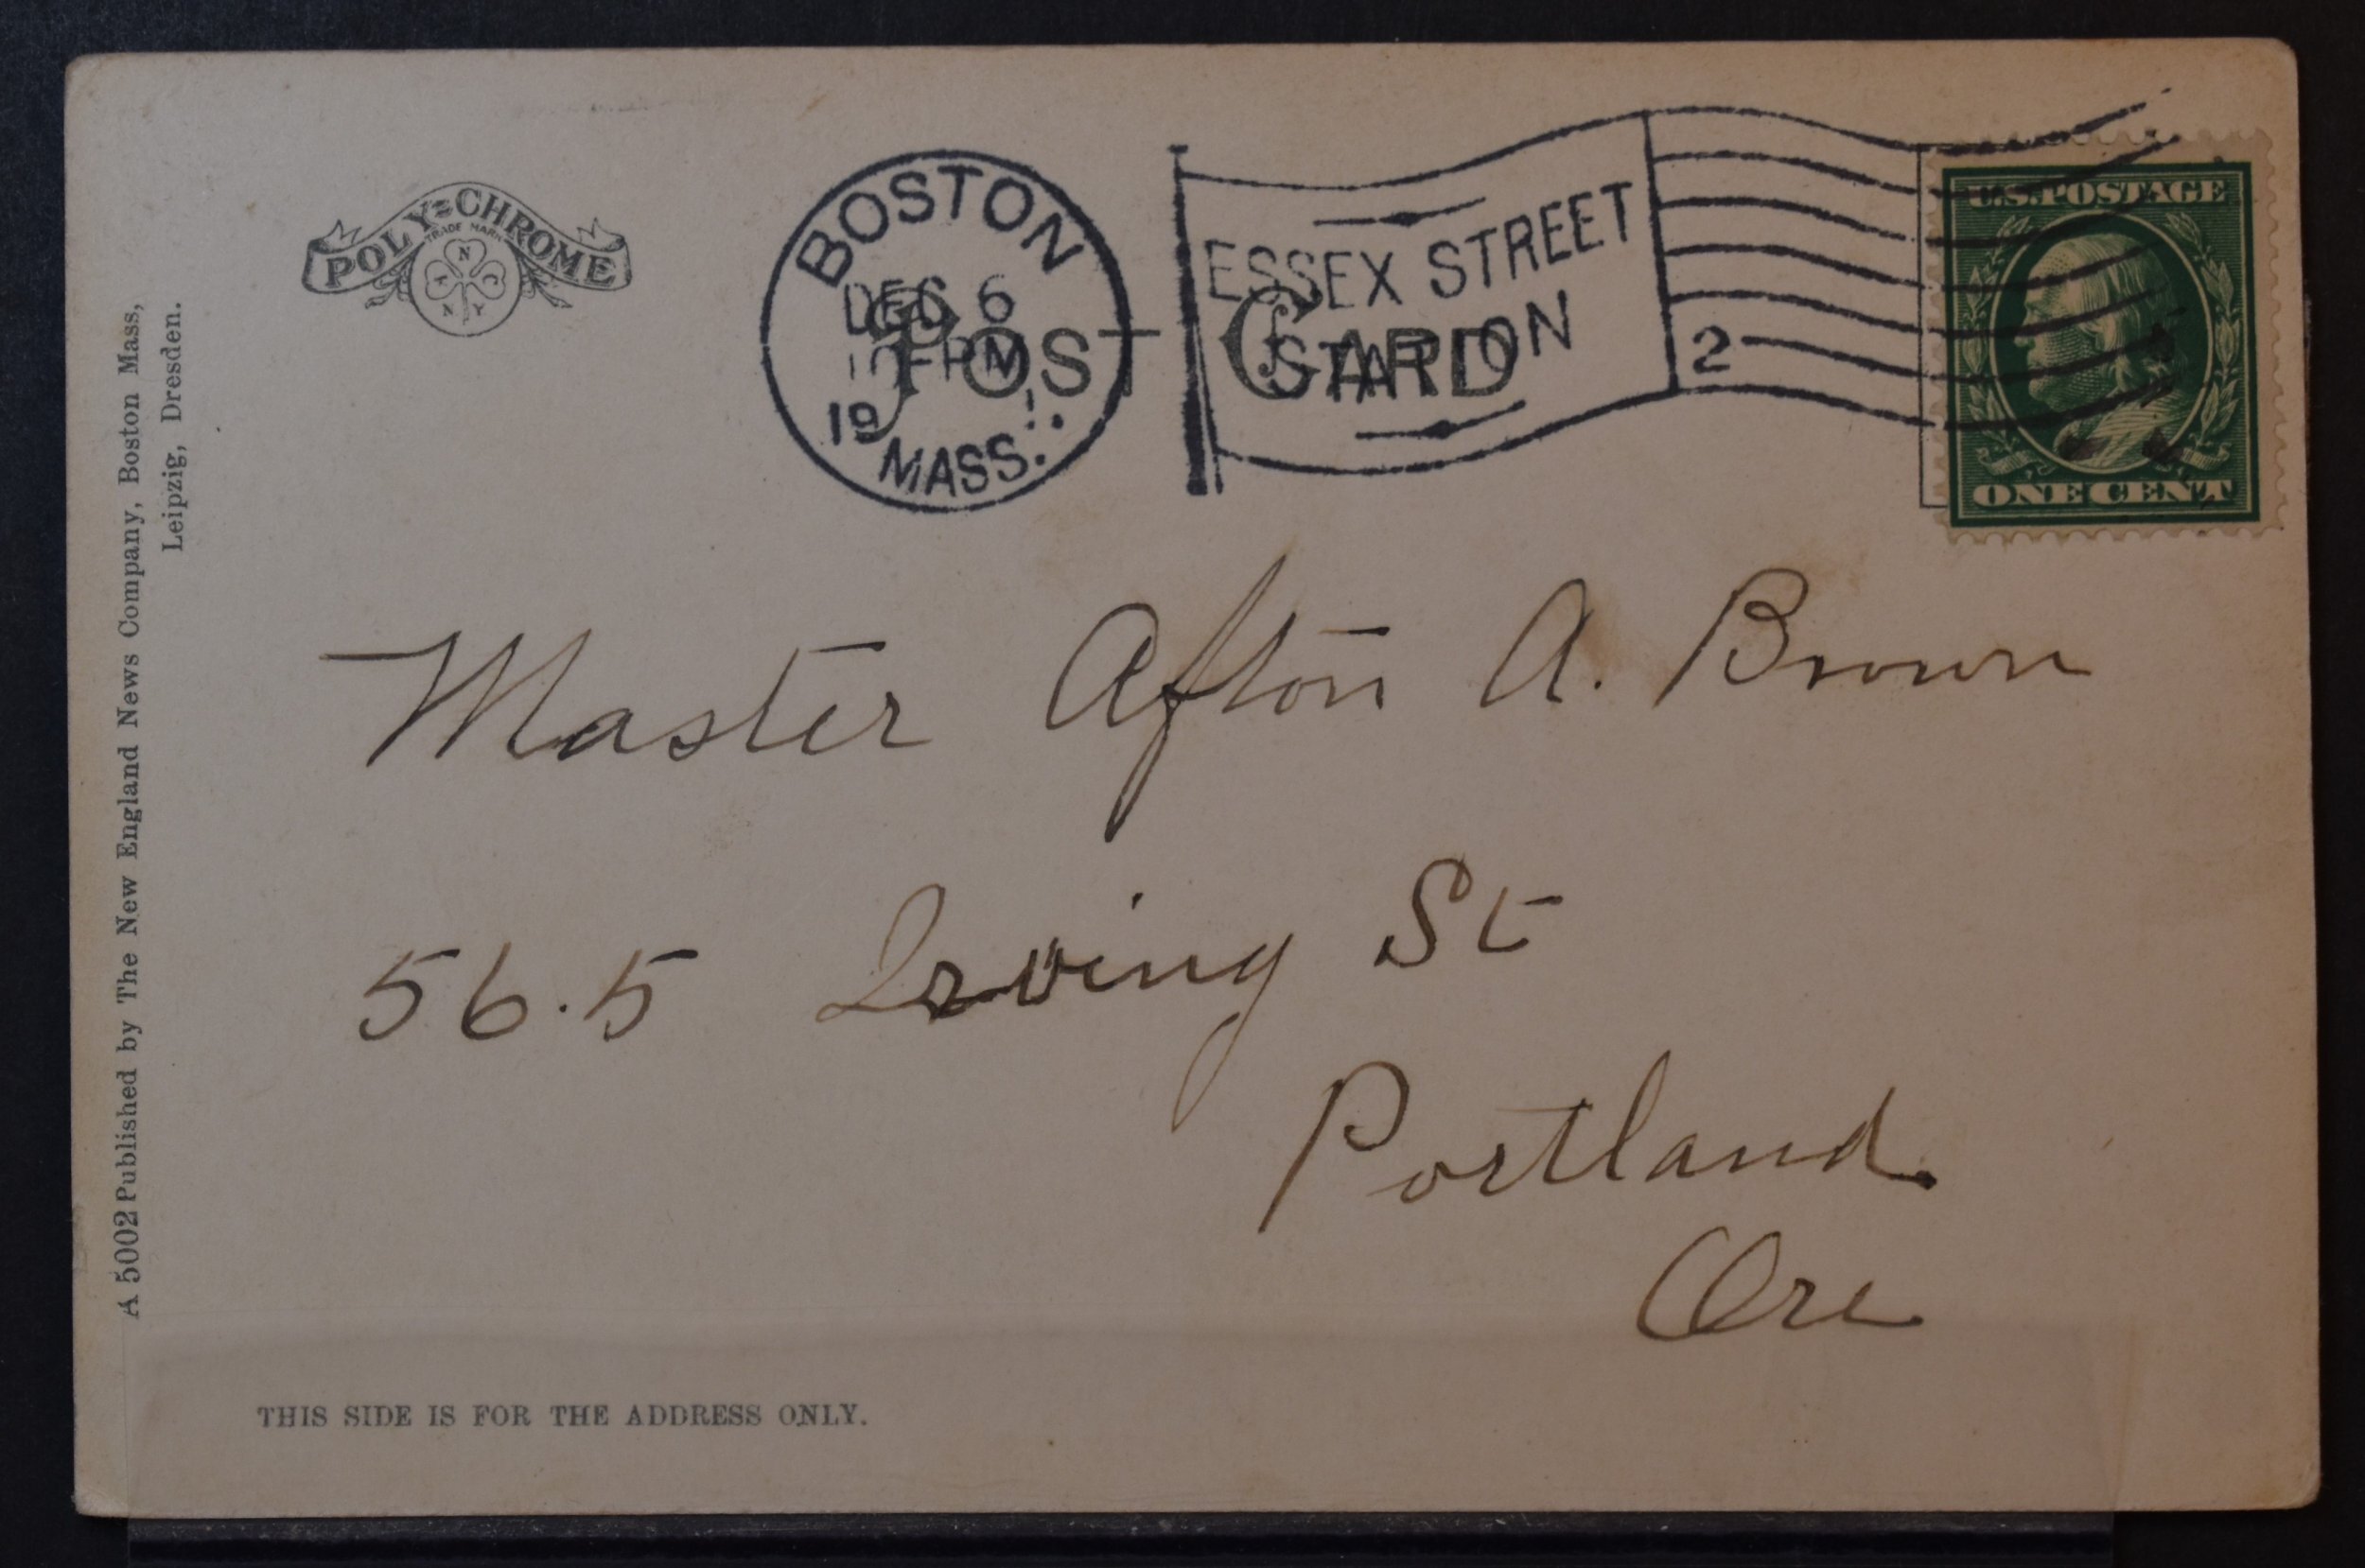 POLY=CHROME
TRADE MARK
N
A C
N Y
BOSTON
DEC 6
MASS.
ESSEX STREET
STATION
2
POST CARD
U.S. POSTAGE
ONE CENT
Master Afton A. Brown
56.5 Irving St
Portland
Ore
THIS SIDE IS FOR THE ADDRESS ONLY.
A 5002 Published by The New England News Company, Boston Mass,
Leipzig, Dresden.